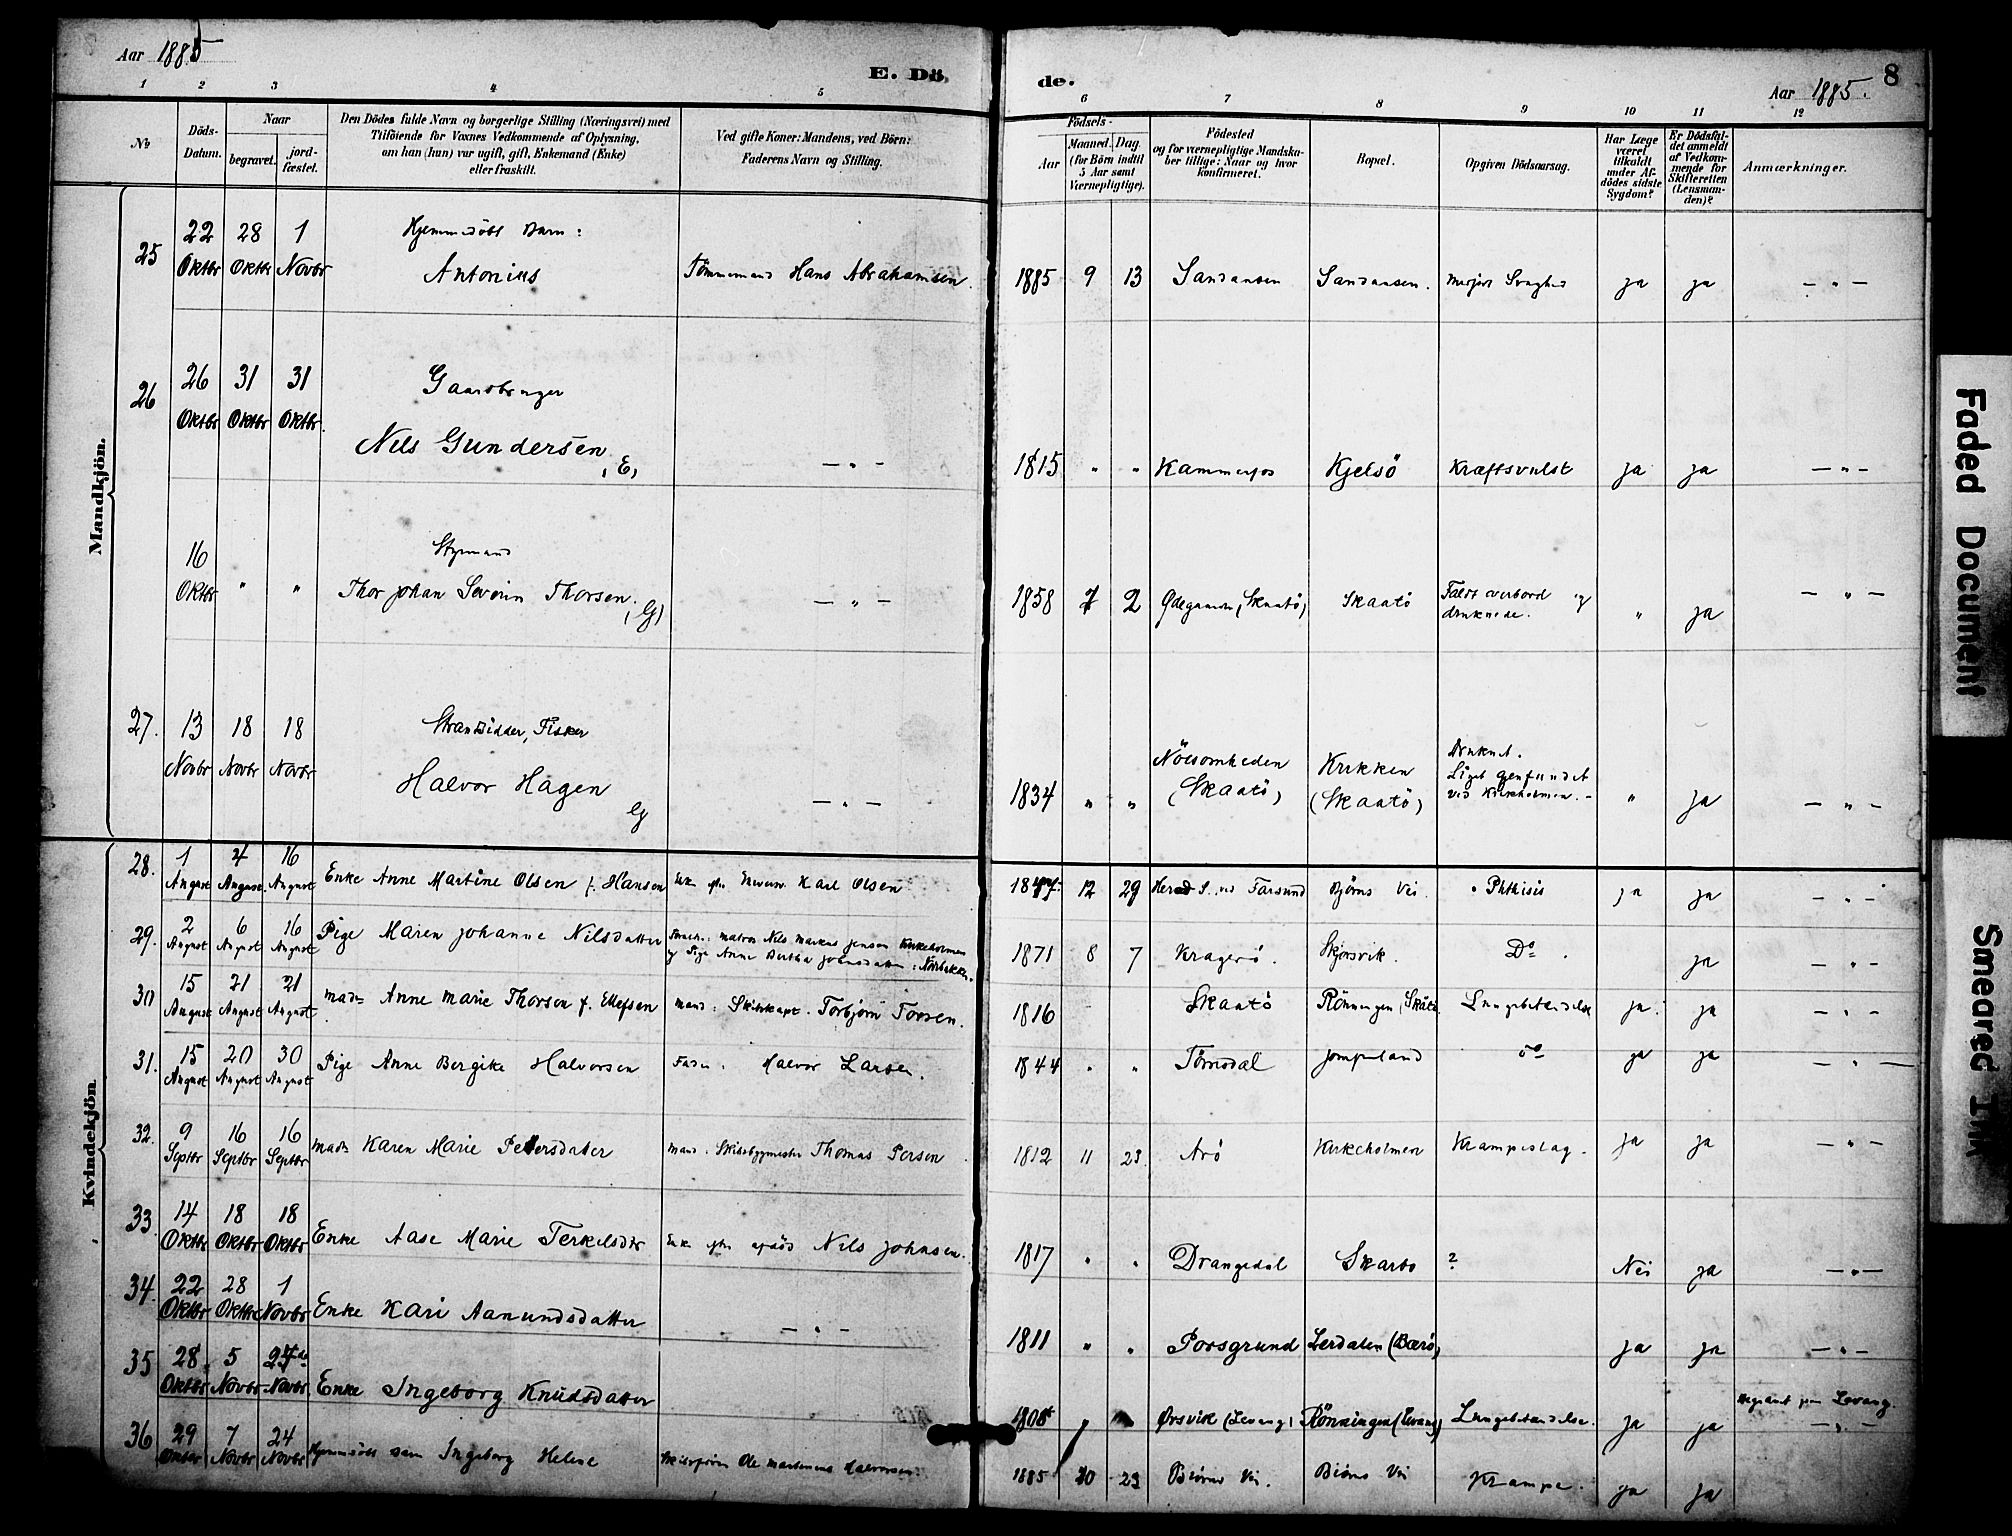 Aar 1885
E. Dö-
de.
Aar 1885.
8
1 2 3 4 5
6 7 8 9 10 11 12
No
Döds-Datum.
Naar
begravet.
jordfæstet.
Den Dödes fulde Navn og borgerlige Stilling (Næringsvei) med
Tilföiende for Voxnes Vedkommende af Oplysning,
om han (hun) var ugift, gift, Enkemand (Enke)
eller fraskilt.
Ved gifte Koner: Mandens, ved Börn:
Faderens Navn og Stilling.
Födsels-
Aar
Maaned. Dag
(for Börn indtil
5 Aar samt
Værnepligtige).
Födested
og for værnepligtige Mandska-
ber tillige: Naar og hvor
konfirmeret.
Bopæl.
Opgiven Dödsaarsag.
Har Læge
været
tilkaldt
under Af-
dödes sidste
Sygdom?
Er Dödsfal-
det anmeldt
af Vedkom-
mende for
Skifteretten
(Lensman-
den)?
Anmærkninger.
Mandkjön.
25 22 Oktbr 28 Oktbr 1 Novbr Hjemmedöbt Barn: Antonius Tömmermand Hans Abrahamsen. 1885 9 13 Sandaasen Sandaasen. Svaghed ja ja — " —
26 26 Oktbr 31 Oktbr 31 Oktbr. Gaardbruger Nils Gundersen (E) — " — 1815 " " Kammerfos Kjelsö Kræftsvulst ja ja — " —
16 Oktbr " " Styrmand Thor Johan Severin Thorsen. (G) — " — 1858 7 2 Ødegaarden (Skaatö) Skaatö Faldt overbord og druknede. " ja — " —
27. 13 Novbr 18 Novbr 18 Novbr Strandsidder, Fisker Halvor Hagen G — " — 1834 " " (Skaatö) Krikken (Skaatö) Druknet. Liget gjenfundet ved Kirkeholmen. — " ja — " —
Kvindekjön.
28. 1 August 4 August 16 August Enke Anne Martine Olsen f. Hansen Enke efter Karl Olsen 1847 12 29 Herad S. ved Farsund Björns Vei. Phthisis ja ja — " —
29. 2 August 6 August 16 August Pige Maren Johanne Nilsdatter Matros Nils Markus Jensen Kirkeholmen og Pige Anne Bertha 1871 8 7 Kragerö. Skjörsvik. Do. ja — " —
30 15 August 21 August 21 August Mad. Anne Marie Thorsen f. Ellefsen Mand: Skibskapt. Torbjörn Torsen. 1816 Skaatö Rönningen, Skåtö. Lungebetændelse ja. ja — " —
31. 15 August 20 August 30 August Pige Anne Bergitte Halvorsen Fader: Halvor Larsen. 1844 " " Törrisdal Jomfruland do ja ja — " —
32. 9 Septbr 16 Septbr 16 Septbr Mad. Karen Marie Pettersdatter Mand: Skibsbygmester Thomas Persen 1812 11 23. Arö Kirkeholmen Krampeslag. ja ja — " —
33 14 Oktbr 18 Oktbr 18 Oktbr Enke Aase Marie Terkelsdtr Enke efter Nils Johnsen. 1817 " " Drangedal Skarbo ? Nei ja — " —
34. 22 Oktbr 28 Oktbr 1 Novbr Enke Kari Aanundsdatter — " — 1811 " " Porsgrund Lerdalen (Bærö) ja ja — " —
35 28 Oktbr 5 Novbr Novbr. Enke Ingeborg Knudsdatter Ørsvik (Levang) Rönningen (Levang) Lungebetændelse. ja ja Levang. — " —
36 29 Oktbr 7 Novbr 24 Novbr Hjemmedöbt Barn Ingeborg Helene Skibsförer Ole Martinius Halvorsen. 1885 10 23 Björns Vei. Björns Vei Krampe. ja ja
Faded Document
Smeared Ink